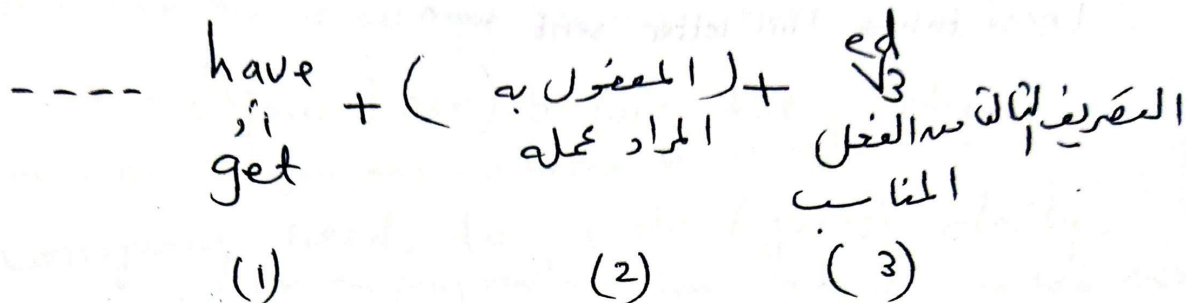 ---- have أو get + (المفعول به المراد عمله) + ed V3 التصريف الثالث من الفعل المناسب
(1) (2) (3)